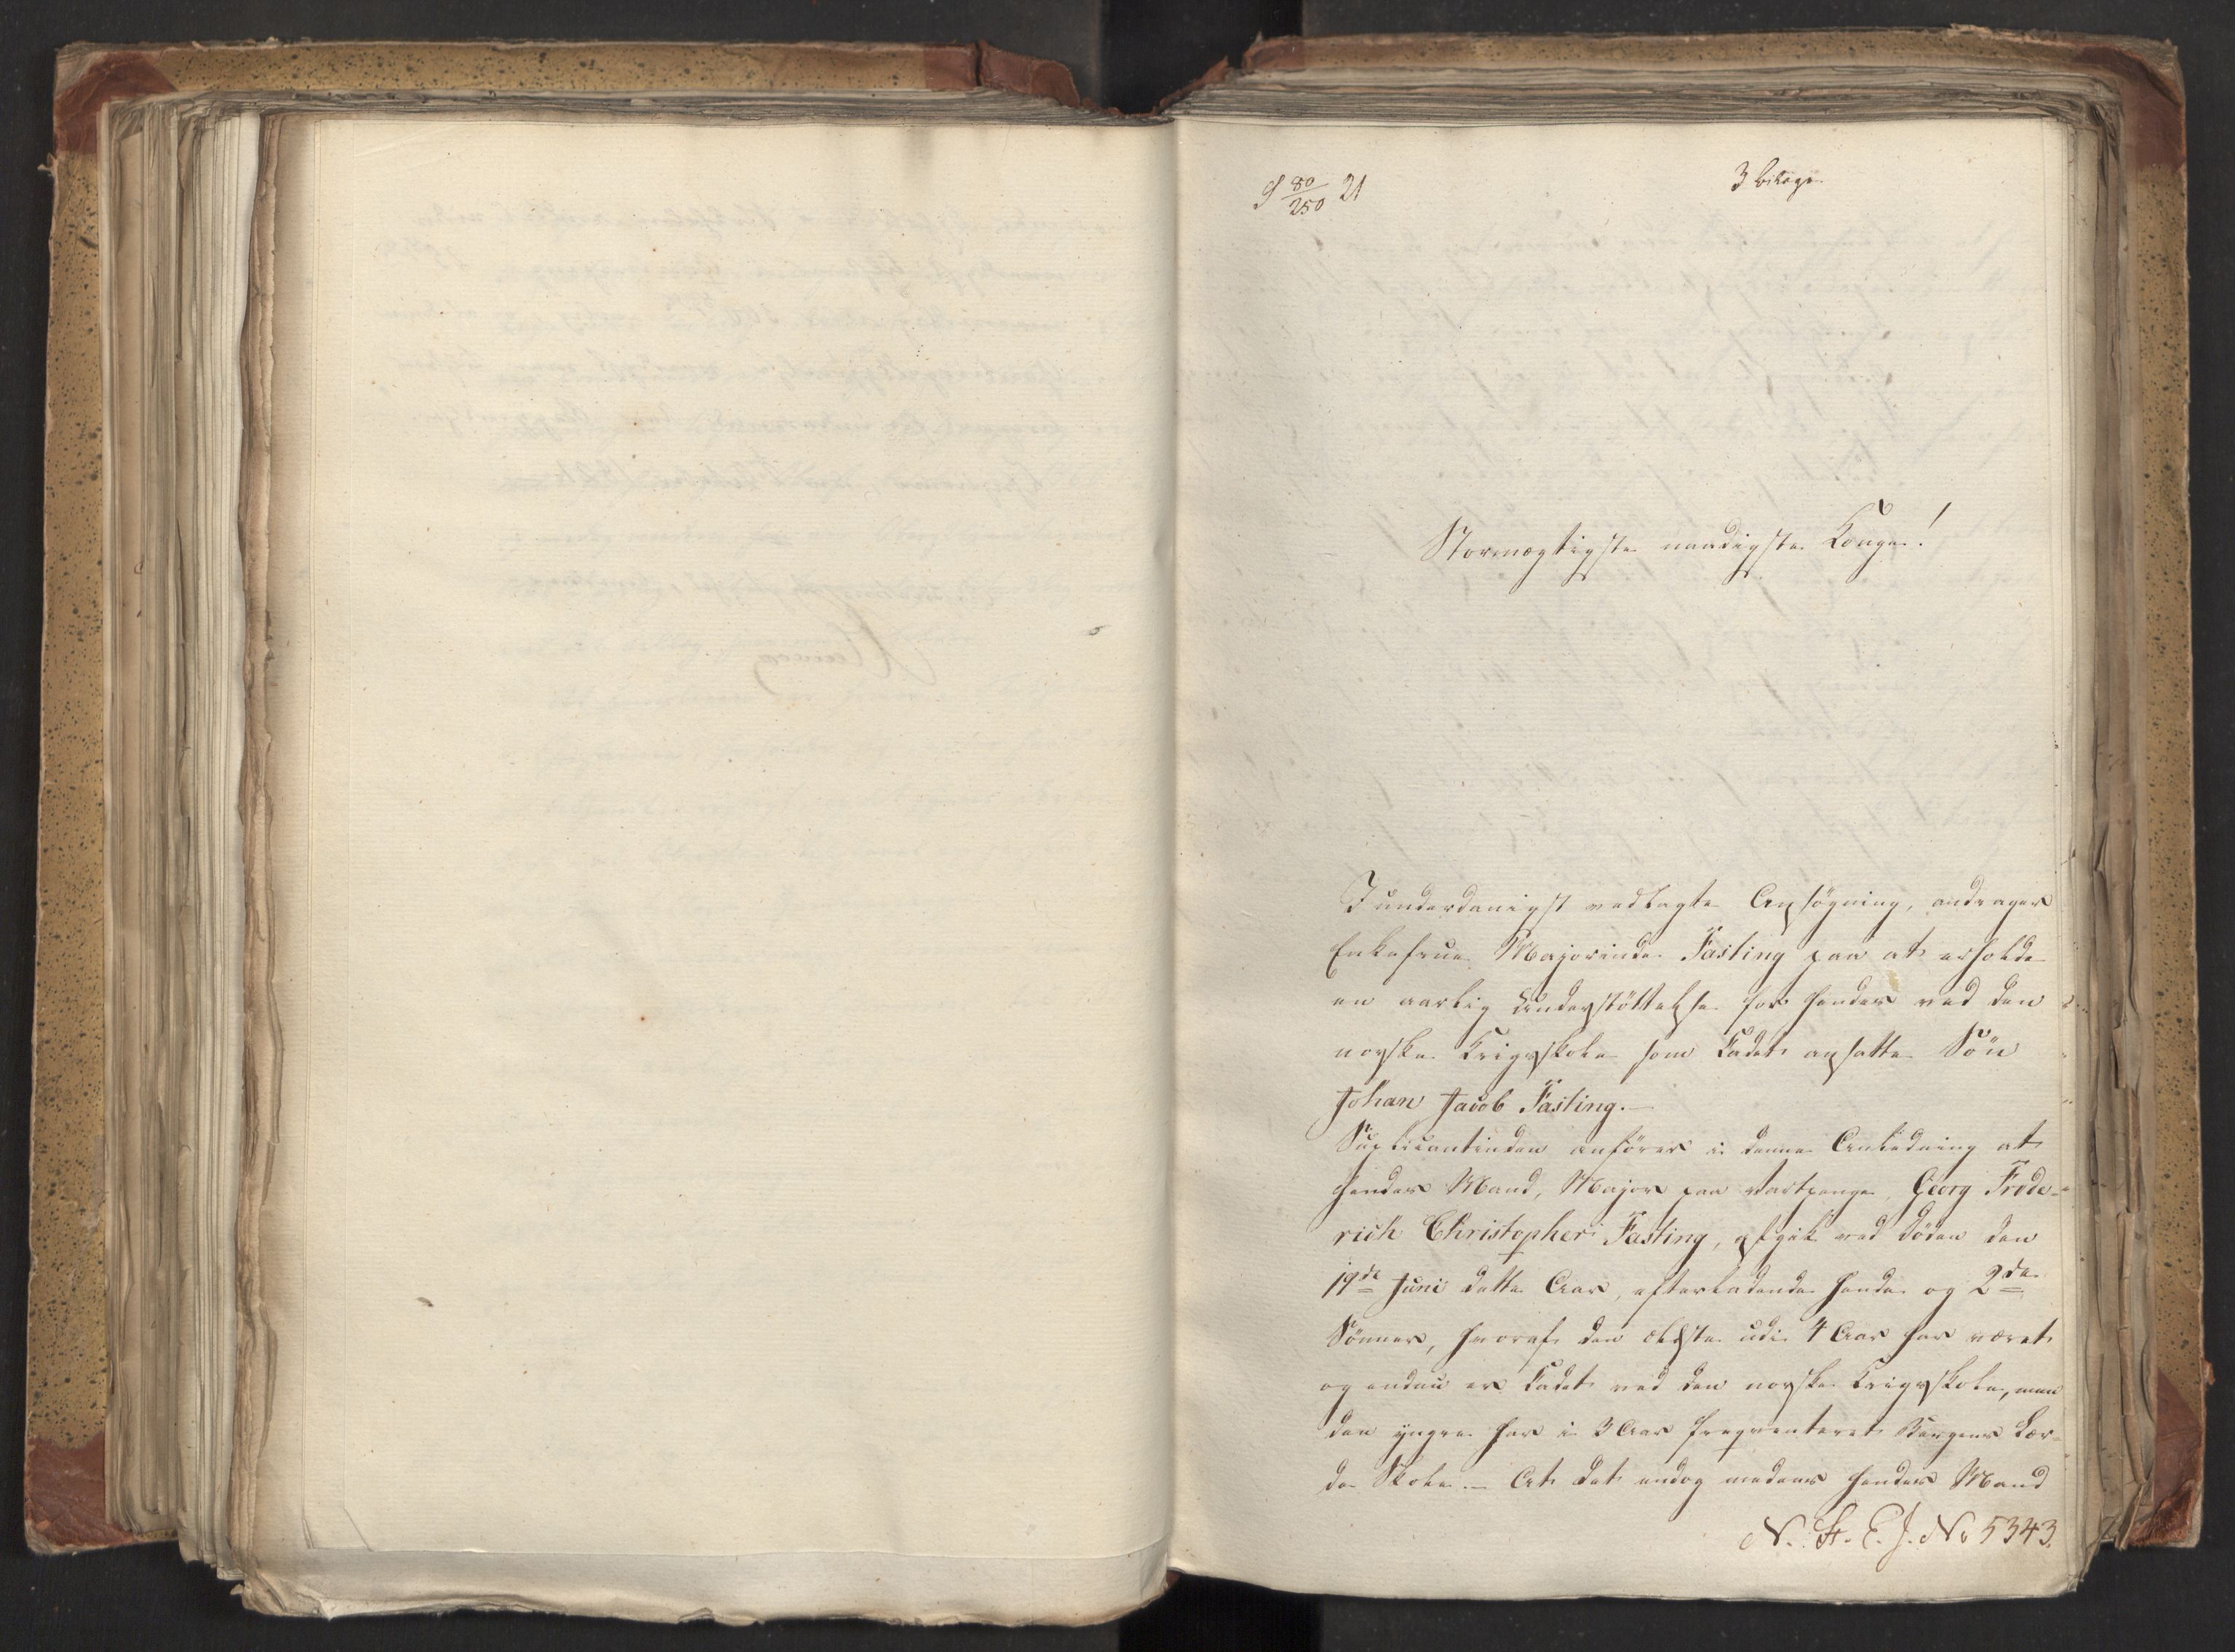 S 80/250 21
3 bilage
Stormægtigste naadigste Konge!
I underdanigst vedlagte Ansøgning, andrager
Enkefrue Majorinde Fasting paa at erholde
en aarlig Understöttelse for hendes ved den
norske Krigsskole som Kadet ansatte Sön
Johan Jacob Fasting.—
Suplicantinden anförer i denne Anledning at
hendes Mand, Major paa Vartpenge, Georg Frede-
rich Christopher Fasting, afgik ved Döden den
19de Juni dette Aar, efterladende hende og 2de
Sönner, hvoraf den ældste udi 4 Aar har været
og endnu er Kadet ved den norske Krigsskole, men
den yngre har i 3 Aar freqventeret Bergens Lær-
de Skole.— At det endog medens hendes Mand
N. St. E. J. No 5343.